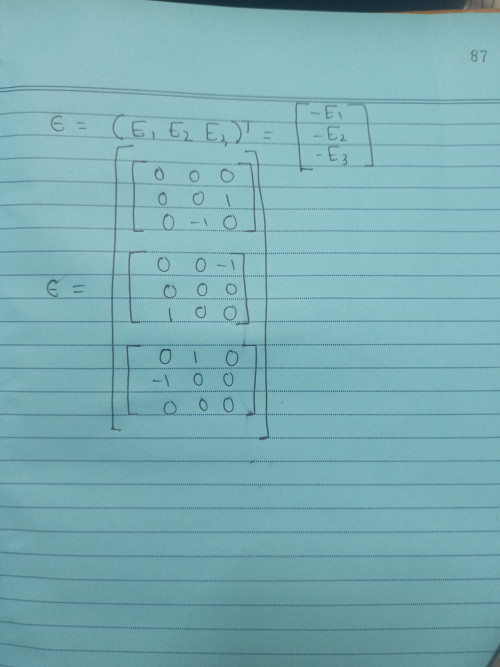 87
ϵ = (E₁ E₂ E₃)ᵀ = [-E₁
-E₂
-E₃]
ϵ =
[[0 0 0
0 0 1
0 -1 0]
[0 0 -1
0 0 0
1 0 0]
[0 1 0
-1 0 0
0 0 0]]